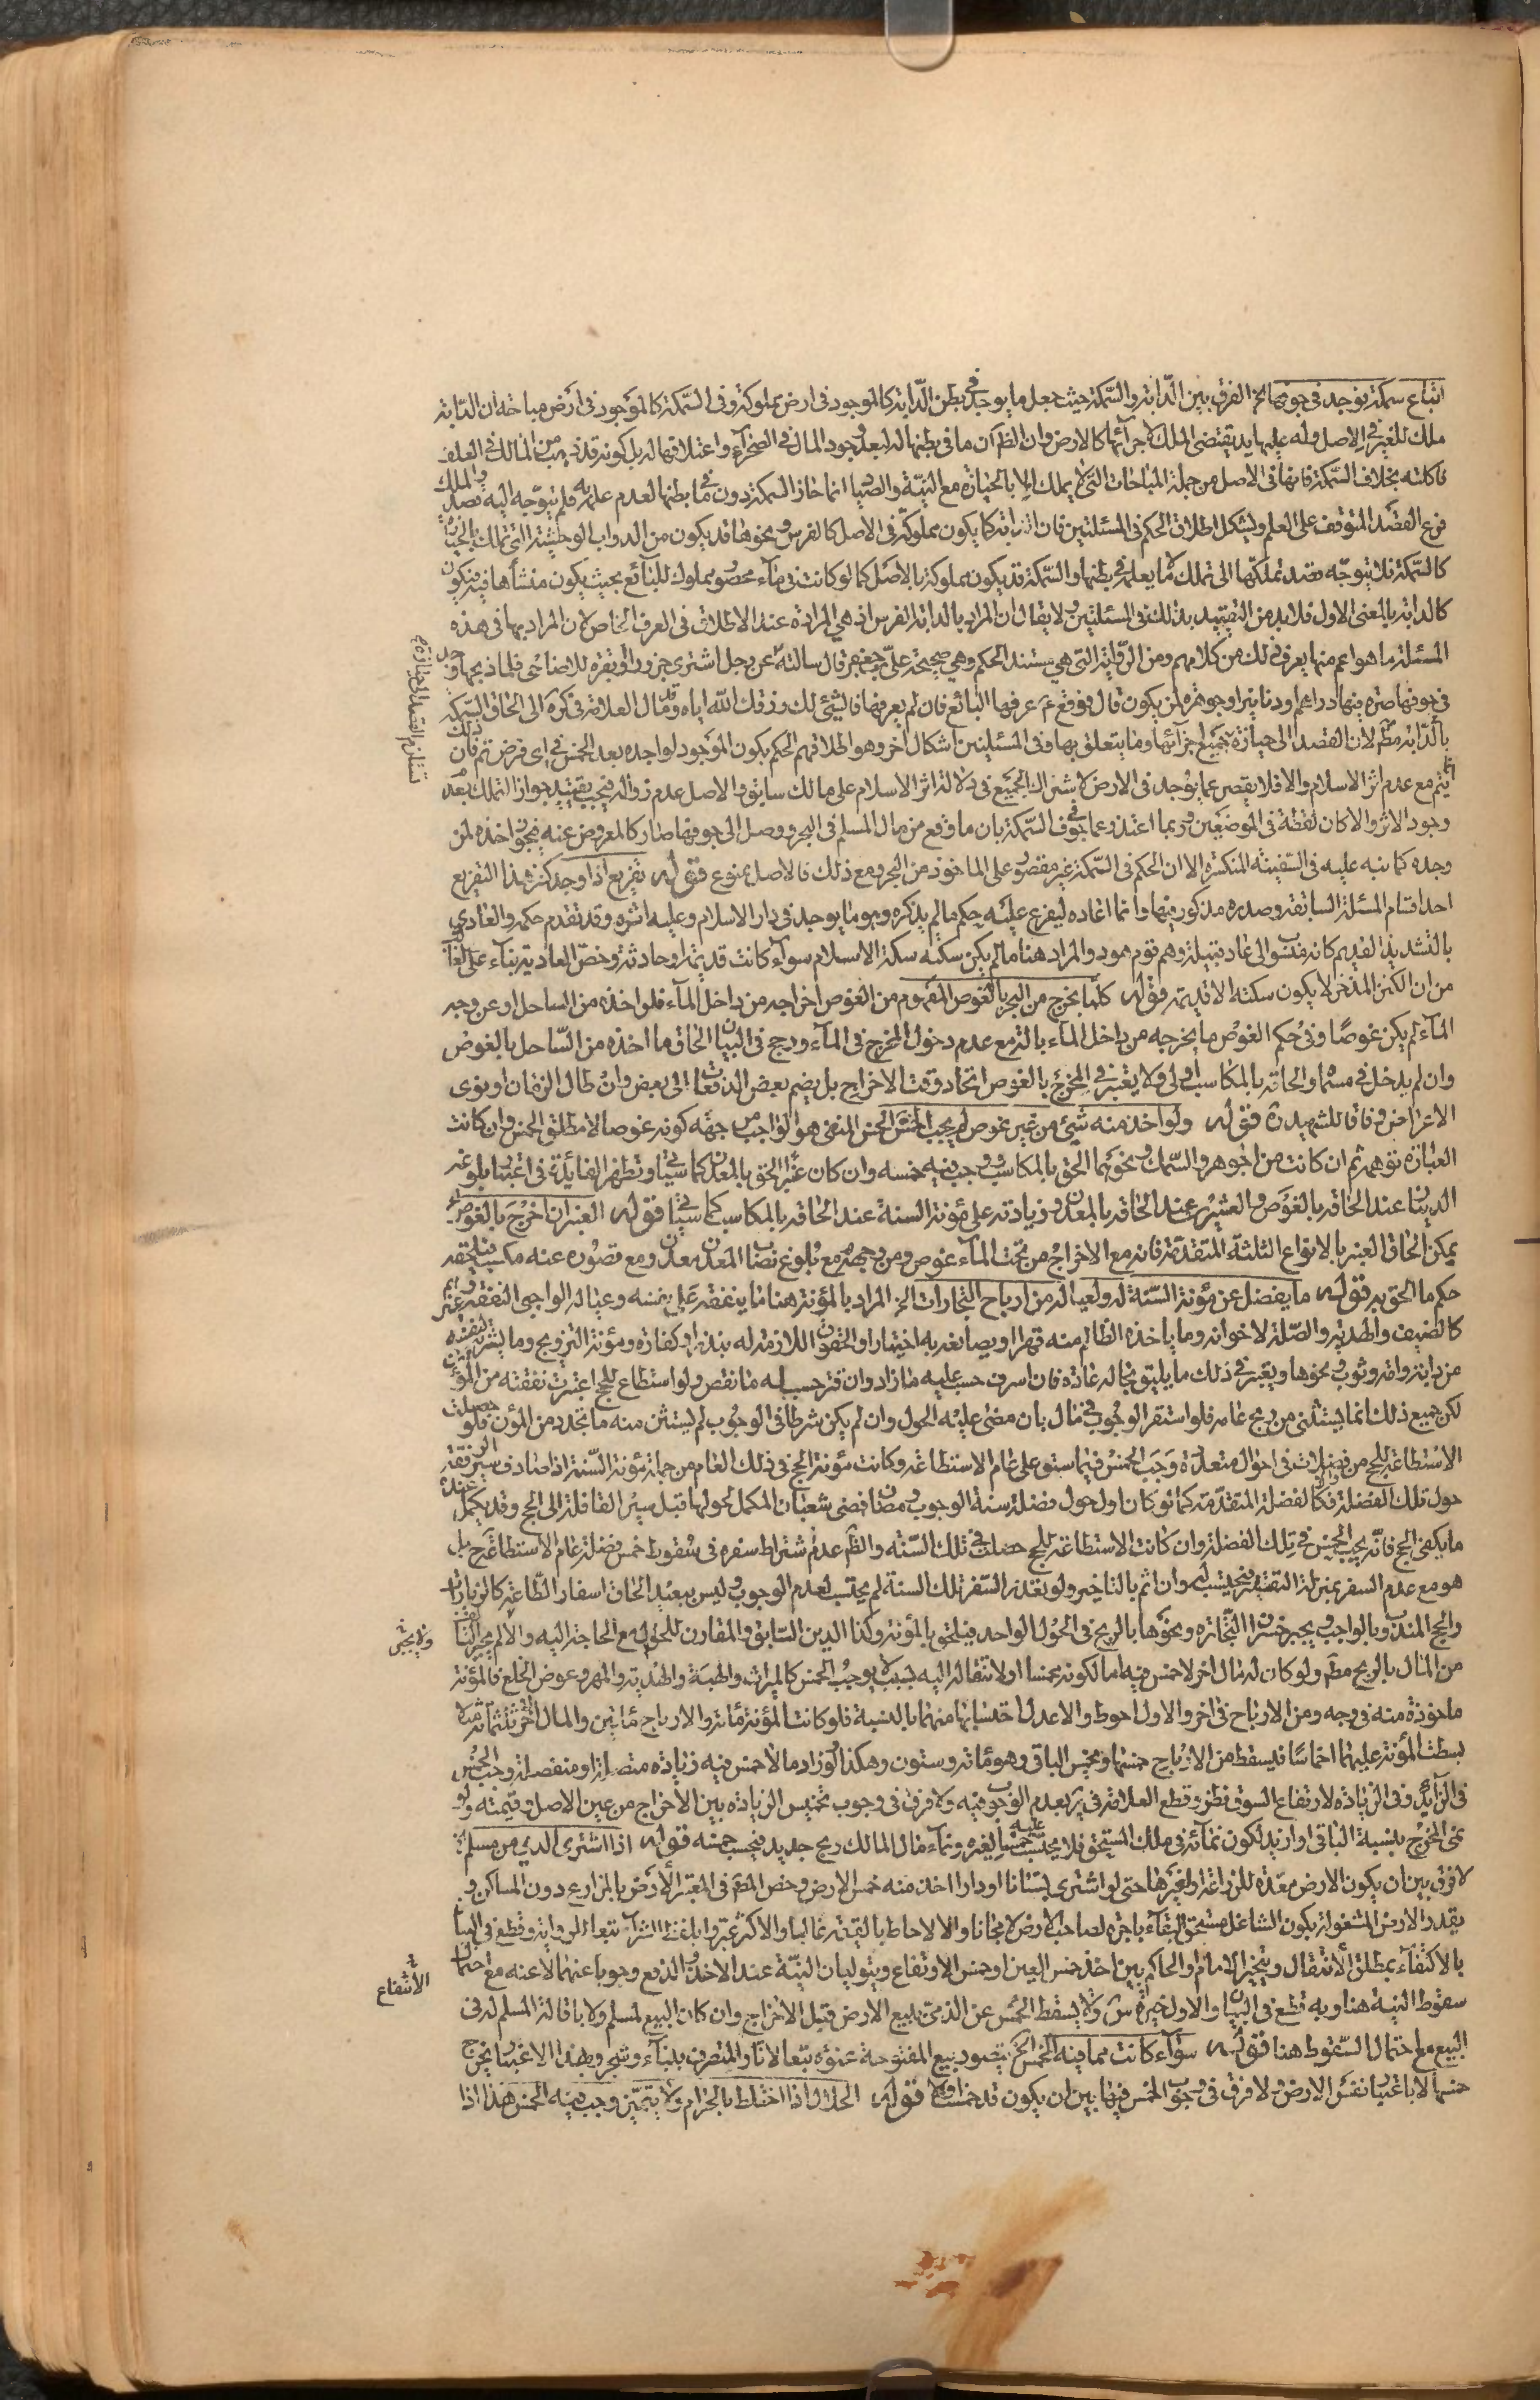 ابتاع سمكة فوجد في جوفها الخ الفرق بين الدّابة والسّمكة حيث جعل ما يوجد في بطن الدّابة كالموجود في ارض مملوكة وفي السّمكة كالموجود في ارض مباحة ان الدّابة
ملك للغير في الاصل وله عليها يد يقتضي الملك لاجزائها كالارض وان الظ ان ما في بطنها له لبعد وجود المال في الصحراء واعتلافها له بل كونه قد ذهب من المالك في العلف
فاكلته بخلاف السّمكة فانها في الاصل من جملة المباحات التي لا يملك الا بالحيازة مع النيّة والصياد انما حاز السمكة دون ما في بطنها لعدم علمه به فلم يتوجّه اليه قصد والملك
فرع القصد المتوقف على العلم ويشكل اطلاق الحكم في المسئلتين فان الدابة كما يكون مملوكة في الاصل كالفرس ونحوها قد يكون من الدواب الوحشية التي تملك بالحيازة
كالسّمكة فلا يتوجّه قصد تملكها الى تملك ما لا يعلمه في بطنها والسّمكة قد يكون مملوكة بالاصل كما لو كانت في ماء محصور مملوك للبائع بحيث يكون منشأها فيه فيكون
كالدابة بالمعنى الاول فلا بد من التقييد بذلك في المسئلتين ولا يقال ان المراد بالدابة الفرس اذ هي المرادة عند الاطلاق في العرف الخاص لان المراد بها في هذه
المسئلة ما هو اعم منها يعرف ذلك من كلامهم ومن الرّواية التي هي مستند الحكم وهي صحيحة علي بن جعفر قال سالته عن رجل اشترى جزورا او بقرة للاضاحي فلما ذبحها وجد
في جوفها صرة فيها دراهم او دنانير او جوهرة لمن يكون قال فوقع ع عرفها البائع فان لم يعرفها فالشيء لك رزقك الله اياه وقد مال العلامة في كره الى الحاق السّمكة
بالدّابة مطم لان القصد الى حيازة تستلزم القصد الى حيازة جميع اجزائها وما يتعلق بها وفي المسئلتين اشكال اخر وهو اطلاقهم الحكم بكون الموجود لواجده بعد الخمس في اي فرض تم فان ذلك
انما يتم مع عدم اثر الاسلام والا فلا يقصر عما يوجد في الارض لاشتراك الجميع في دلالة اثر الاسلام على مالك سابق والاصل عدم زواله فيجب تقييد جواز التملك بعدم
وجود الاثر والا كان لقطة في الموضعين وربما اعتذر عما في جوف السّمكة بان ما وقع من مال المسلم في البحر ووصل الى جوفها صار كالمعرض عنه فيجوز اخذه لمن
وجده كما نبه عليه في السّفينة المنكسرة الا ان الحكم في السّمكة غير مقصور على الماخوذ من البحر ومع ذلك فالاصل ممنوع قوله تفريع اذا وجد كنز هذا التفريع
احد اقسام المسئلة السابقة وصدره مذكور فيها وانما اعاده ليفرع عليه حكم ما لم يذكره وهو ما يوجد في دار الاسلام وعليه اثره وقد تقدم حكمه والعادي
بالتشديد القديم كانه منسوب الى عاد قبيلة وهم قوم هود والمراد هنا ما لم يكن سكته سكة الاسلام سوآء كانت قديمة او حادثة وخصّ العادية بناء على الغالب
من ان الكنز المذخر لا يكون سكته الا قديمة قوله كلّما يخرج من البحر بالغوص المفهوم من الغوص اخراجه من داخل المآء فلو اخذه من الساحل او عن وجه
المآء لم يكن غوصا وفي حكم الغوص ما يخرجه من داخل المآء بالة مع عدم دخول المخرج في المآء ورجح في البيان الحاق ما اخذه من السّاحل بالغوص
وان لم يدخل في مسماه والحاقه بالمكاسب اولى ولا يعتبر في المخرج بالغوص اتحاد وقت الاخراج بل يضم بعض الدفعات الى بعض وان طال الزمان او نوى
الاعراض وفاقا للشهيد ره قوله ولو اخذ منه شيء من غير غوص لم يجب الخمس الخمس المنفي هو الواجب من جهة كونه غوصا لا مطلق الخمس وان كانت
العبارة توهمه ثم ان كانت من الجوهر والسّمك ونحوهما الحق بالمكاسب ووجب فيه خمسه وان كان عنبرا الحق بالمعدن كما سيأتي وتظهر الفائدة في اعتبار بلوغه
الدينار عند الحاقه بالغوص والعشرين عند الحاقه بالمعدن وزيادته على مؤنة السنة عند الحاقه بالمكاسب كما سيأتي قوله العنبر ان اخرج بالغوص الخ
يمكن الحاق العنبر بالانواع الثلثة المتقدّمة فانه مع الاخراج من تحت المآء غوص ومن وجهه مع بلوغ نصاب المعدن معدن ومع قصوره عنه مكسب فيلحقه
حكم ما الحق به قوله ما يفضل عن مؤنة السّنة له ولعياله من ارباح التجارات الخ المراد بالمؤنة هنا ما ينفقه على نفسه وعياله الواجبي النفقة وغيرهم
كالضيف والهدية والصّلة لاخوانه وما ياخذه الظالم منه قهرا او يصانعه به اختيارا والحقوق اللازمة له بنذر او كفارة ومؤنة التزويج وما يشتريه لنفسه
من دابة وامة وثوب ونحوها ويعتبر في ذلك ما يليق بحاله عادة فان اسرف حسب عليه ما زاد وان قتر حسب له ما نقص ولو استطاع للحج اعتبرت نفقته من المؤن
لكن جميع ذلك انما يستثنى من ربح عامه فلو استقر الوجوب في مال بان مضى عليه الحول وان لم يكن شرطا في الوجوب لم يستثن منه ما تجدد من المؤن فلو حصلت
الاستطاعة للحج من فضلات في احوال متعددة وجب الخمس فيما سبق على عام الاستطاعة وكانت مؤنة الحج في ذلك العام من جملة مؤنة السّنة اذا صادف سير الرفقة
حول تلك الفضلة فكالفضلة المتقدّمة كما لو كان اول حول فضلة سنة الوجوب رمضان فضى شعبان المكمل لحولها قبل سير القافلة الى الحج وقد يكمل عنده
ما يكفي الحج فانّه يجب الخمس في تلك الفضلة وان كانت الاستطاعة للحج حصلت في تلك السّنة والظ عدم اشتراط سفره في سقوط خمس فضلة عام الاستطاعة ح بل
هو مع عدم السفر بمنزلة التقتير فيحتسب له وان اثم بالتاخير ولو تعذر السّفر تلك السنة لم يحتسب لعدم الوجوب وليس ببعيد الحاق اسفار الطّاعة كالزيارة
والحج المندوب بالواجب ويجبر خسران التجارة ونحوها بالربح في الحول الواحد فيلحق بالمؤنة وكذا الدين السّابق والمقارن للحول مع الحاجة اليه والا لم يجز ولا يجبر التالف
من المال بالربح مطم ولو كان له مال اخر لا خمس فيه اما لكونه مخمسا او لانتقاله اليه بسبب لا يوجب الخمس كالميراث والهبة والهدية والمهر وعوض الخلع فالمؤنة
ماخوذة منه في وجه ومن الارباح في اخر والاول احوط والاعدل احتسابها منهما بالنسبة فلو كانت المؤنة مائة والارباح مائتين والمال الاخر ثلثمائة مثلا
بسطت المؤنة عليهما اخماسا فيسقط من الارباح خمسها ويخمس الباقي وهو مائة وستون وهكذا لو زاد ما لا خمس فيه زيادة متصلة او منفصلة وجب الخمس
في الزآئد وفي الزيادة لارتفاع السّوق نظر وقطع العلامة في ير بعدم الوجوب فيه ولا فرق في وجوب تخميس الزيادة بين الاخراج من عين الاصل وقيمته ولو
نمى المخرج بنسبة الباقي او ازيد لكون نمائه في ملك المستحق فلا يحتسب عليه خمسا لغيره ونماء مال المالك ربح جديد فيحسب خمسه قوله اذا اشترى الذمي من مسلم الخ
لا فرق بين ان يكون الارض معدّة للزراعة او لغيرها حتى لو اشترى بستانا او دارا اخذ منه خمس الارض وخص المصّ في المعتبر الارض بالمزارع دون المساكن و
يقدر الارض المشغولة بكون الشاغل مستحق البقآء باجرة لصاحب الارض لا مجانا والا لاحاط بالقيمة غالبا والاكثر عبروا بلفظ الشرآء تبعا للرواية وقطع في البيان
بالاكتفآء بمطلق الانتقال ويتخير الامام والحاكم بين اخذ خمس العين او خمس الارتفاع ويتوليان النيّة عند الاخذ والدفع وجوبا عنهما لا عنه مع احتمال
سقوط النية هنا وبه قطع في البيان والاول خيرة س ولا يسقط الخمس عن الذمي ببيع الارض قبل الاخراج وان كان البيع لمسلم ولا باقالة المسلم له في
البيع مع احتمال السّقوط هنا قوله سوآء كانت مما فيه الخمس الخ يتصور بيع المفتوحة عنوة تبعا لاثار المتصرف ببنآء وشجر وبهذا الاعتبار يخرج
خمسها لا باعتبار نفس الارض ولا فرق في وجوب الخمس فيها بين ان يكون قد خمست او لا قوله الحلال اذا اختلط بالحرام ولا يتميّز وجب فيه الخمس هذا اذا
تستلزم القصد الى حيازة
ولا يجبر
الانتفاع